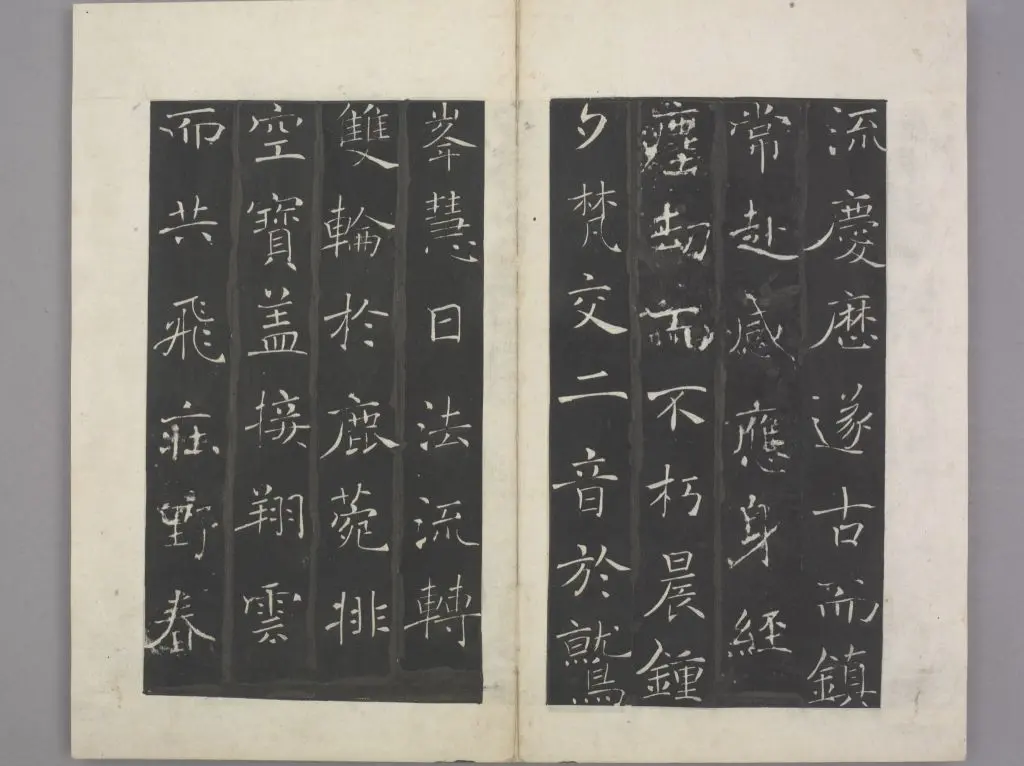 流慶歷遂古而鎮
常赴感應身經
塵劫而不朽晨鍾
夕梵交二音於鷲
峯慧日法流轉
雙輪於鹿菀排
空寶盖接翔雲
而共飛莊野春